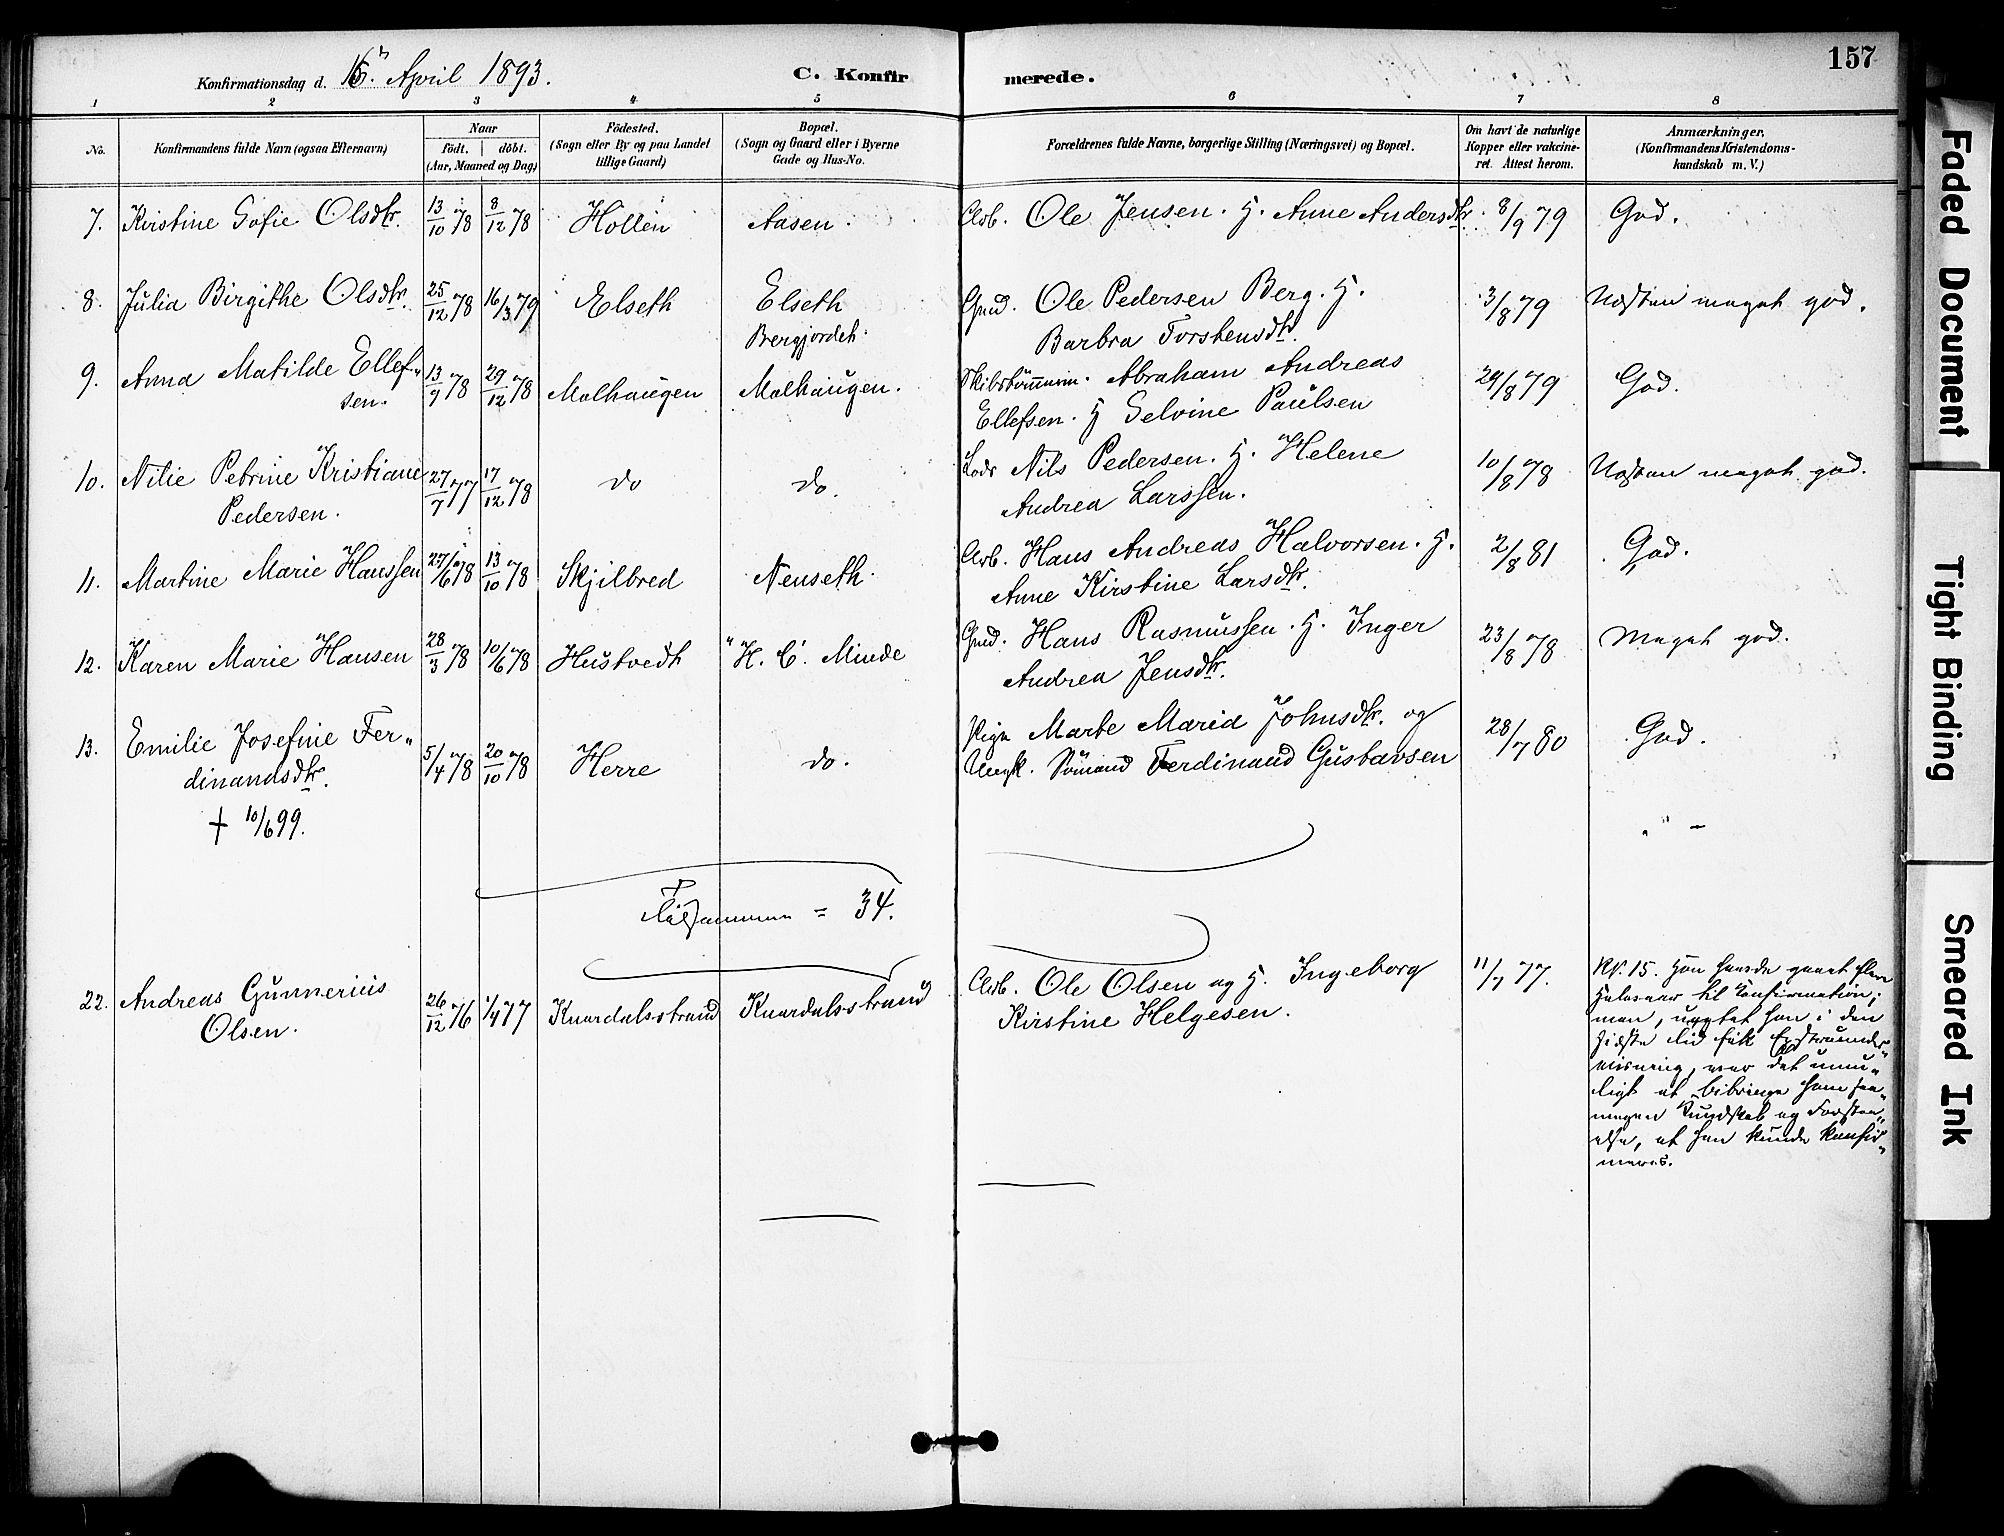 157
Konfirmationsdag d. 16 April 1893. C. Konfirmerede.
1 2 3 4 5 6 7 8
No. Konfirmandens fulde Navn (ogsaa Efternavn) Naar födt. döbt. (Aar, Maaned og Dag) Födested. (Sogn eller By og paa Landet tillige Gaard) Bopæl. (Sogn og Gaard eller i Byerne Gade og Hus-No. Forældrenes fulde Navne, borgerlige Stilling (Næringsvei) og Bopæl. Om havt de naturlige Kopper eller vakcineret. Attest herom. Anmærkninger. (Konfirmandens Kristendomskundskab m. V.)
7. Kirstine Sofie Olsdtr. 13/10 78 8/12 78 Hollen Aasen. Arb. Ole Jensen. H. Anne Andersdtr. 8/9 79 God.
8. Julia Birgithe Olsdtr. 25/12 78 16/3 79 Elseth Elseth Gmd. Ole Pedersen Berg. H. 3/8 79 Næsten meget god.
Bergjordet. Barbra Torstensdtr.
9. Anna Matilde Ellef- 13/9 78 29/12 78 Molhaugen Molhaugen. Skibstömmerm. Abraham Andreas 29/8 79 God.
sen. Ellefsen. H Selvine Paulsen
10. Nilie Petrine Kristiane 27/7 77 17/12 78 do do. Lods Nils Pedersen. H. Helene 10/8 78 Næsten meget god.
Pedersen. Andrea Larssen.
11. Martine Marie Hanssen 27/6 78 13/10 78 Skjilbred Nenseth. Arb. Hans Andreas Halvorsen. H. 2/8 81 God.
Anne Kirstine Larsdtr.
12. Karen Marie Hansen 28/3 78 10/6 78 Hustvedt H. C. Minde Gmd. Hans Rasmussen. H. Inger 23/8 78 Meget god.
Andrea Jensdtr.
13. Emilie Josefine Fer- 5/4 78 20/10 78 Herre do. Pige Marte Maria Johnsdtr. og 28/7 80 God.
dinandsdtr. Ungk. Sömand Ferdinand Gustavsen
† 10/6 99.
Tilsammen = 34.
22. Andreas Gunnerius 26/12 76 1/4 77 Knardalsstrand Knardalsstrand Arb. Ole Olsen og H. Ingeborg 11/7 77. No. 15. Han havde gaaet flere
Olsen. Kirstine Helgesen. Halvaar til Konfirmation;
men, uagtet han i den
sidste Tid fik Extraunder-
visning, var det umu-
ligt at bibringe ham saa
megen Kundskab og Forstaa-
else, at han kunde konfir-
meres.
Faded Document
Tight Binding
Smeared Ink